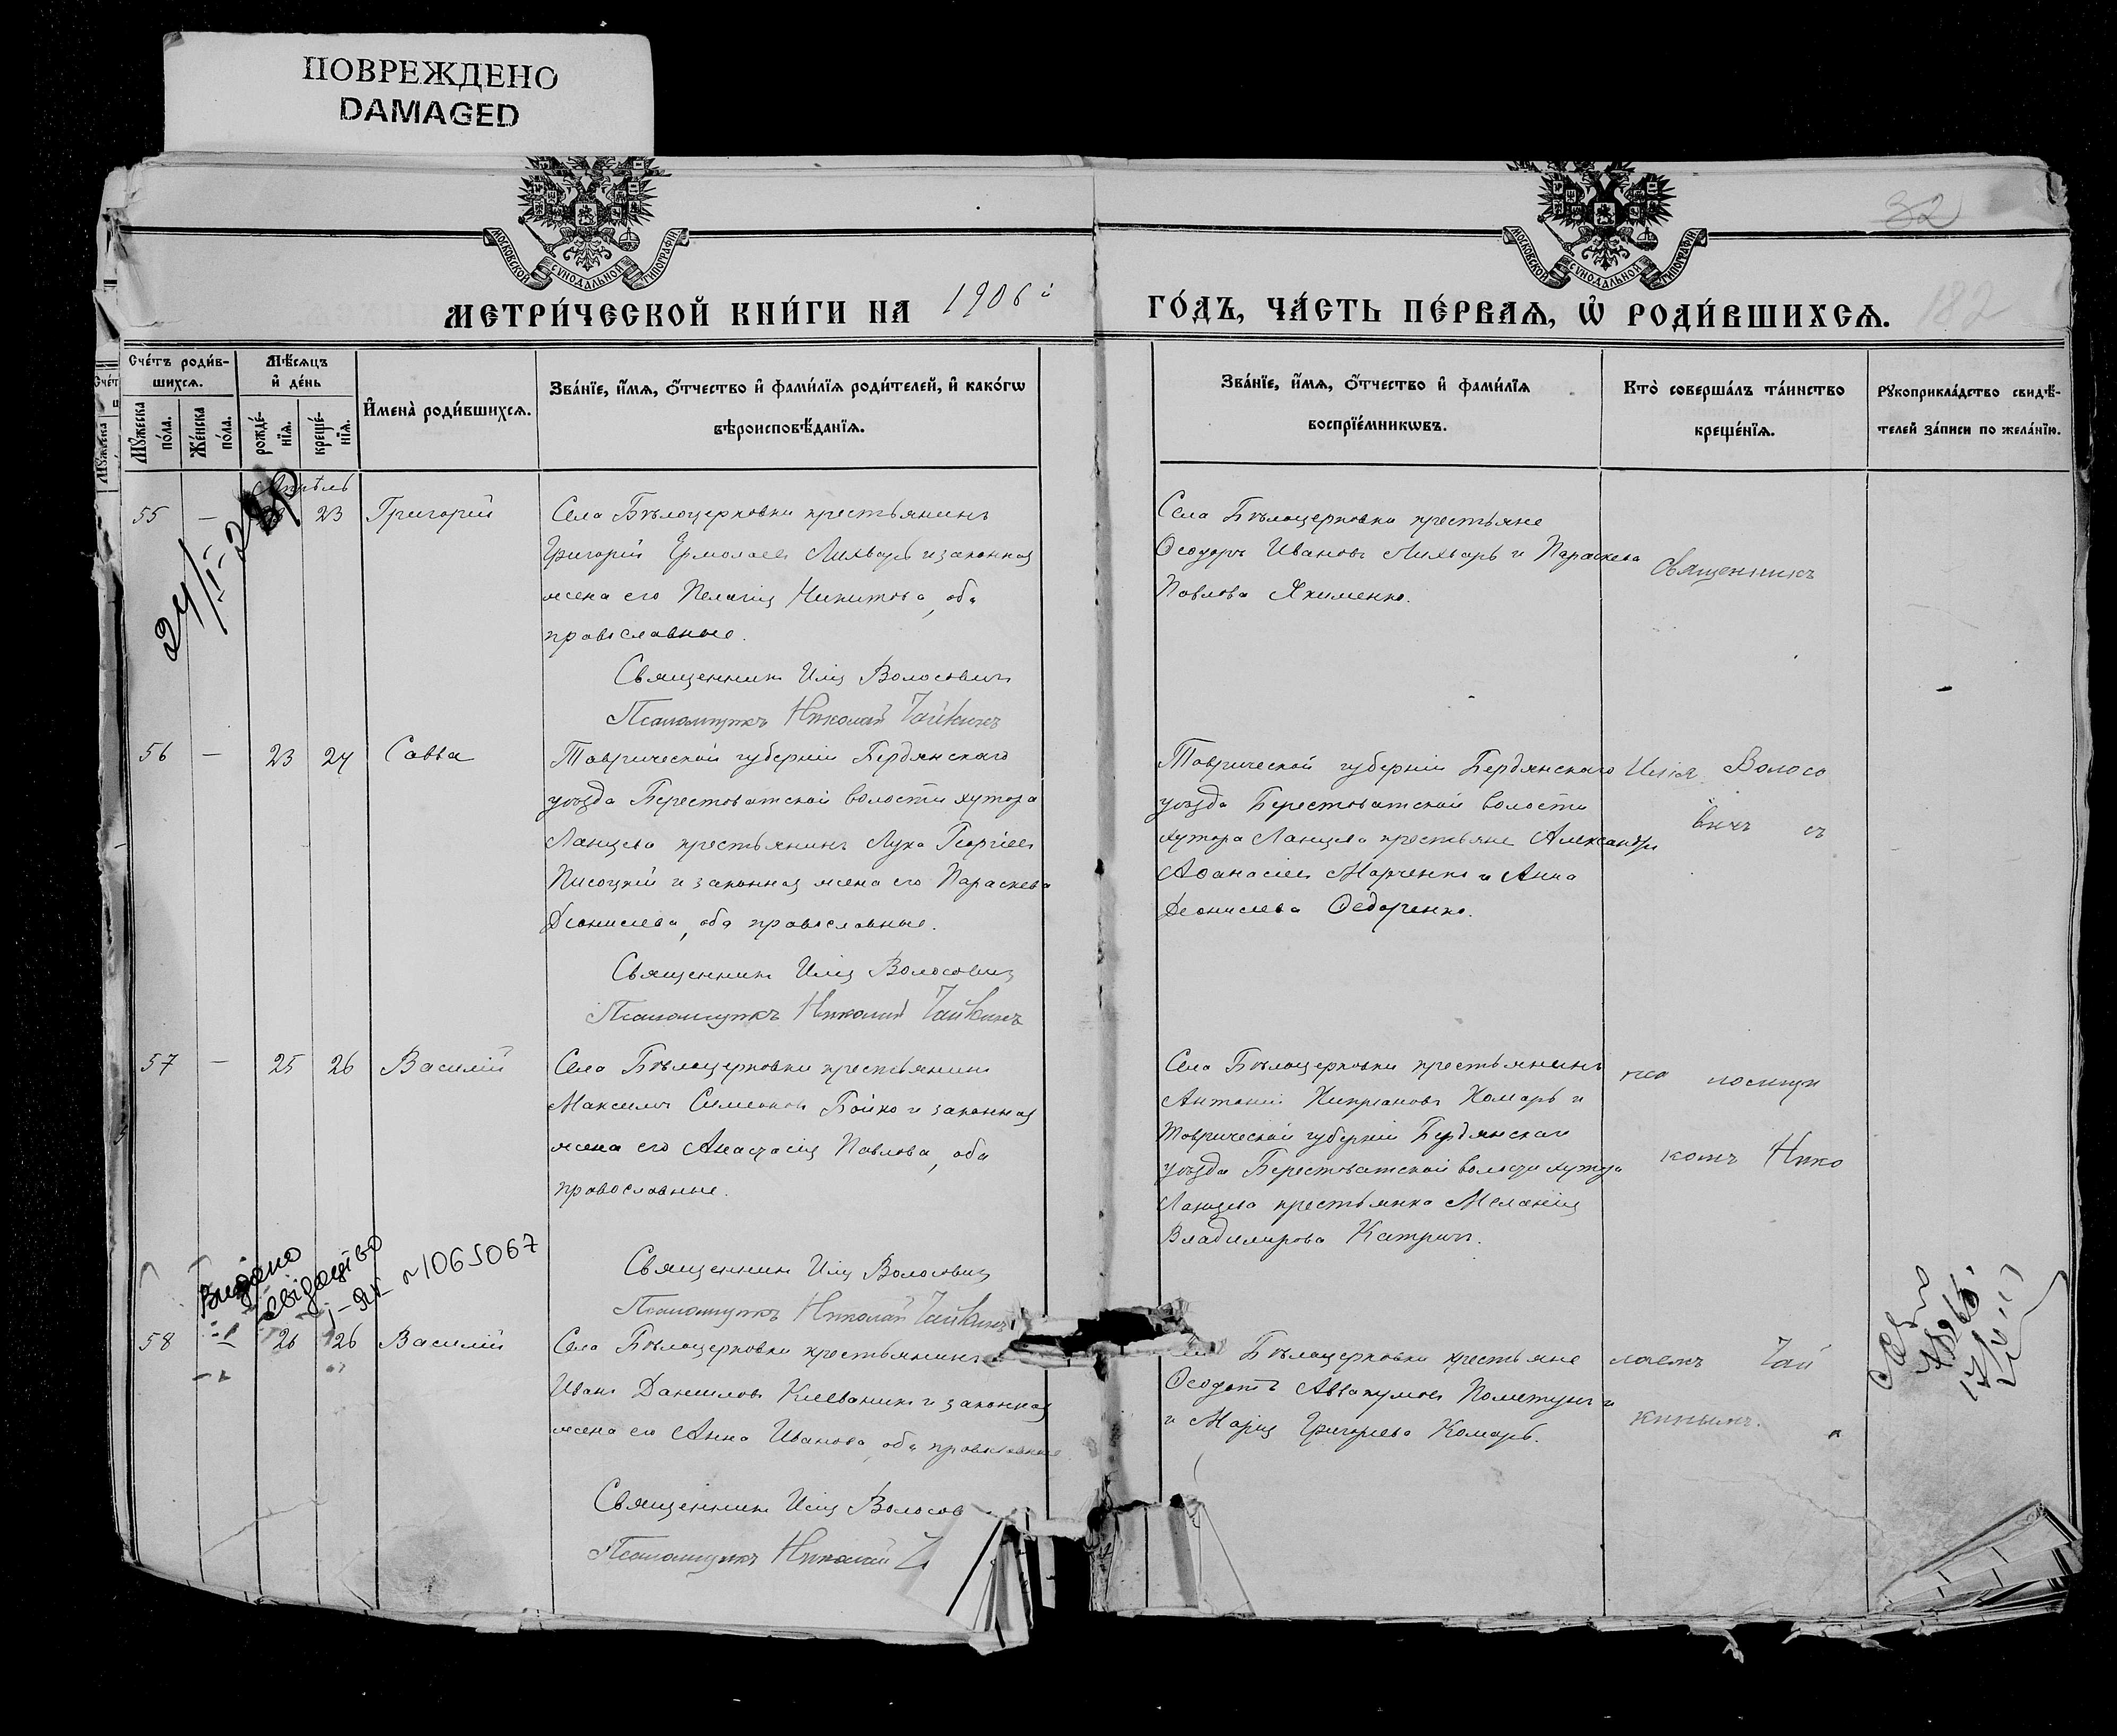 ПОВРЕЖДЕНО
DAMAGED
МОСКОВСКОЙ СѴНОДАЛЬНОЙ ТИПОГРАФІИ
МОСКОВСКОЙ СѴНОДАЛЬНОЙ ТИПОГРАФІИ
32
182
МЕТРИ́ЧЕСКОЙ КНИ́ГИ НА 1906
ГО́ДЪ, ЧА́СТЬ ПЕ́РВАЯ, Ѡ РОДИ́ВШИХСЯ.
Сче́тъ роди́в-
шихся.
Мꙋжеска по́ла.
Же́нска по́ла.
Мѣ́сяцъ
и҆ де́нь
рожде́-
нїя.
креще́-
нїя.
И҆мена̀ роди́вшихся.
Зва́нїе, и҆́мя, ѻ҆́тчество и҆ фами́лїя роди́телей, и҆ како́гѡ
вѣроисповѣ́данїя.
Зва́нїе, и҆́мя, ѻ҆́тчество и҆ фами́лїя
воспрїе́мникѡвъ.
Кто̀ соверша́лъ та́инство
креще́нїя.
Рꙋкоприкла́дство свидѣ́-
телей за́писи по жела́нїю.
Апрѣль
55 — 23 Григорій
Села Бѣлоцерковки крестьянинъ
Григорій Ермолаевъ Лихварь и законная
жена его Пелагія Никитова, оба
православные.
Священникъ Илія Волосовичъ
Псаломщикъ Николай Чайкинъ
Села Бѣлоцерковки крестьяне
Ѳеодоръ Ивановъ Лихварь и Параскева
Павлова Якименко.
Священникъ
56 — 23 24 Савва
Таврической губерніи Бердянскаго
уѣзда Берестоватской волости хутора
Ланцево крестьянинъ Лука Георгіевъ
Писоцкій и законная жена его Параскева
Діонисіева, оба православные.
Священникъ Илія Волосовичъ
Псаломщикъ Николай Чайкинъ
Таврической губерніи Бердянскаго
уѣзда Берестоватской волости
хутора Ланцево крестьяне Александръ
Аѳанасіевъ Марченко и Анна
Діонисіева Ѳедоренко.
Илія Волосо
вичъ съ
57 — 25 26 Василій
Села Бѣлоцерковки крестьянинъ
Максимъ Симеоновъ Бойко и законная
жена его Анастасія Павлова, оба
православные.
Священникъ Илія Волосовичъ
Псаломщикъ Николай Чайкинъ
Села Бѣлоцерковки крестьянинъ
Антоній Кипріановъ Комарь и
Таврической губерніи Бердянскаго
уѣзда Берестоватской волости хутора
Ланцево крестьянка Меланія
Владимірова
псаломщи
комъ Нико
Видано
свідоцтво
1065067
58 — 26 26 Василій
Села Бѣлоцерковки крестьянинъ
Иванъ Даниловъ и законная
жена его Анна Иванова, оба православные
Священникъ Илія Волосов
Псаломщикъ Николай Ч
Бѣлоцерковки крестьяне
Ѳеодотъ Аввакумовъ Пометунъ и
и Марія Григорьева Комарь.
лаемъ Чай
кинымъ.